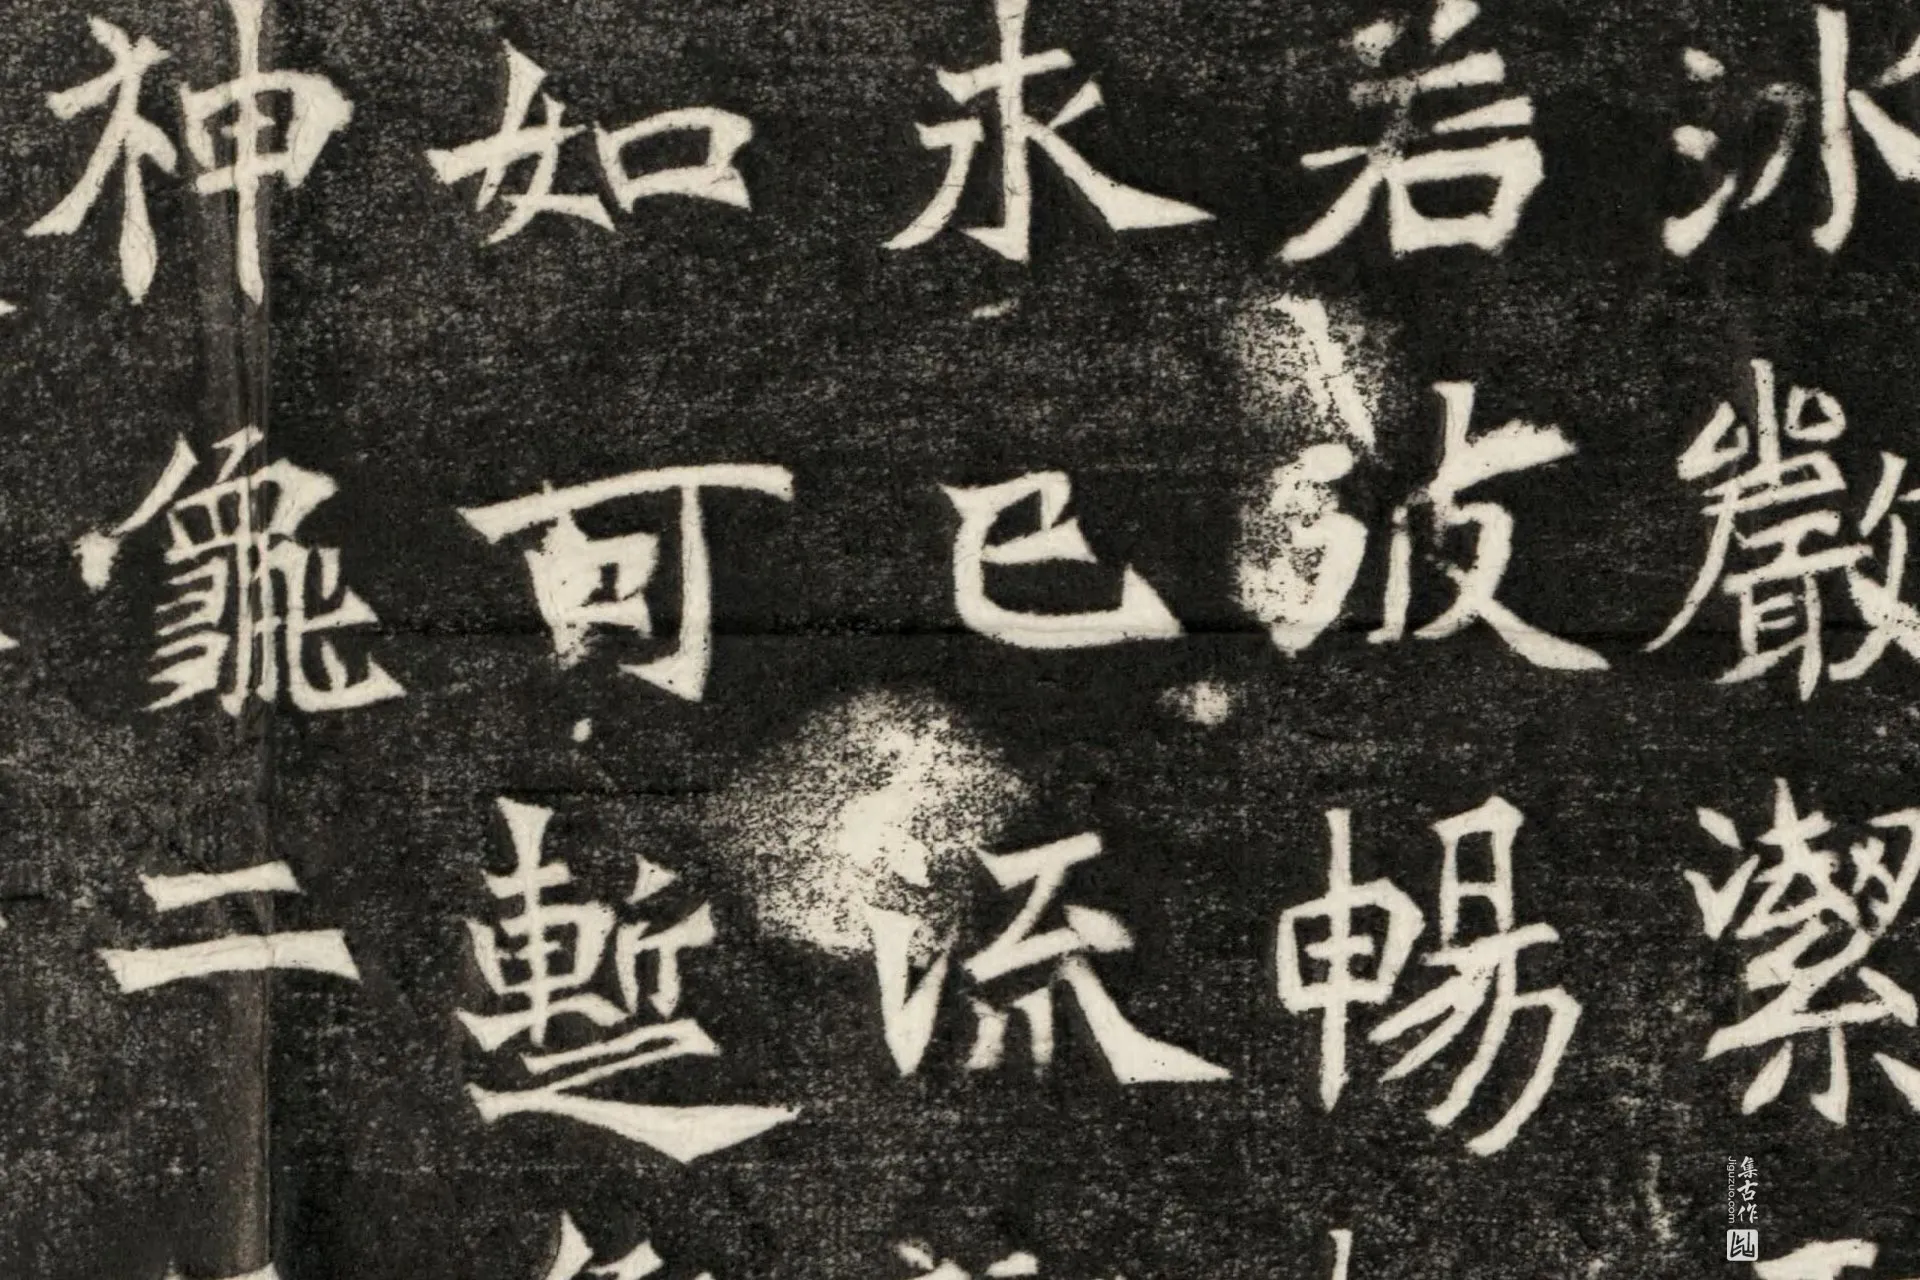 冰嚴潔
若暢
永已流
如可蹔
神龜二
集古作
Jiguzuo.com